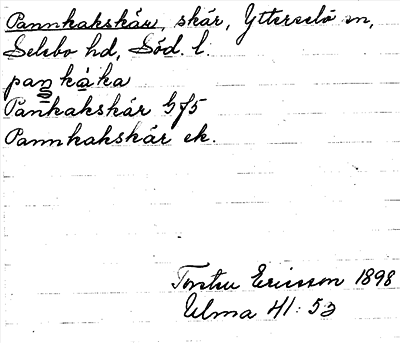 Pannkakskär, skär, Ytterselö sn,
Selebo hd, Söd. l.
paŋkàka
Pankakskär Gf5
Pannkakskär ek.
Torsten Ericsson 1898
Ulma 41:53